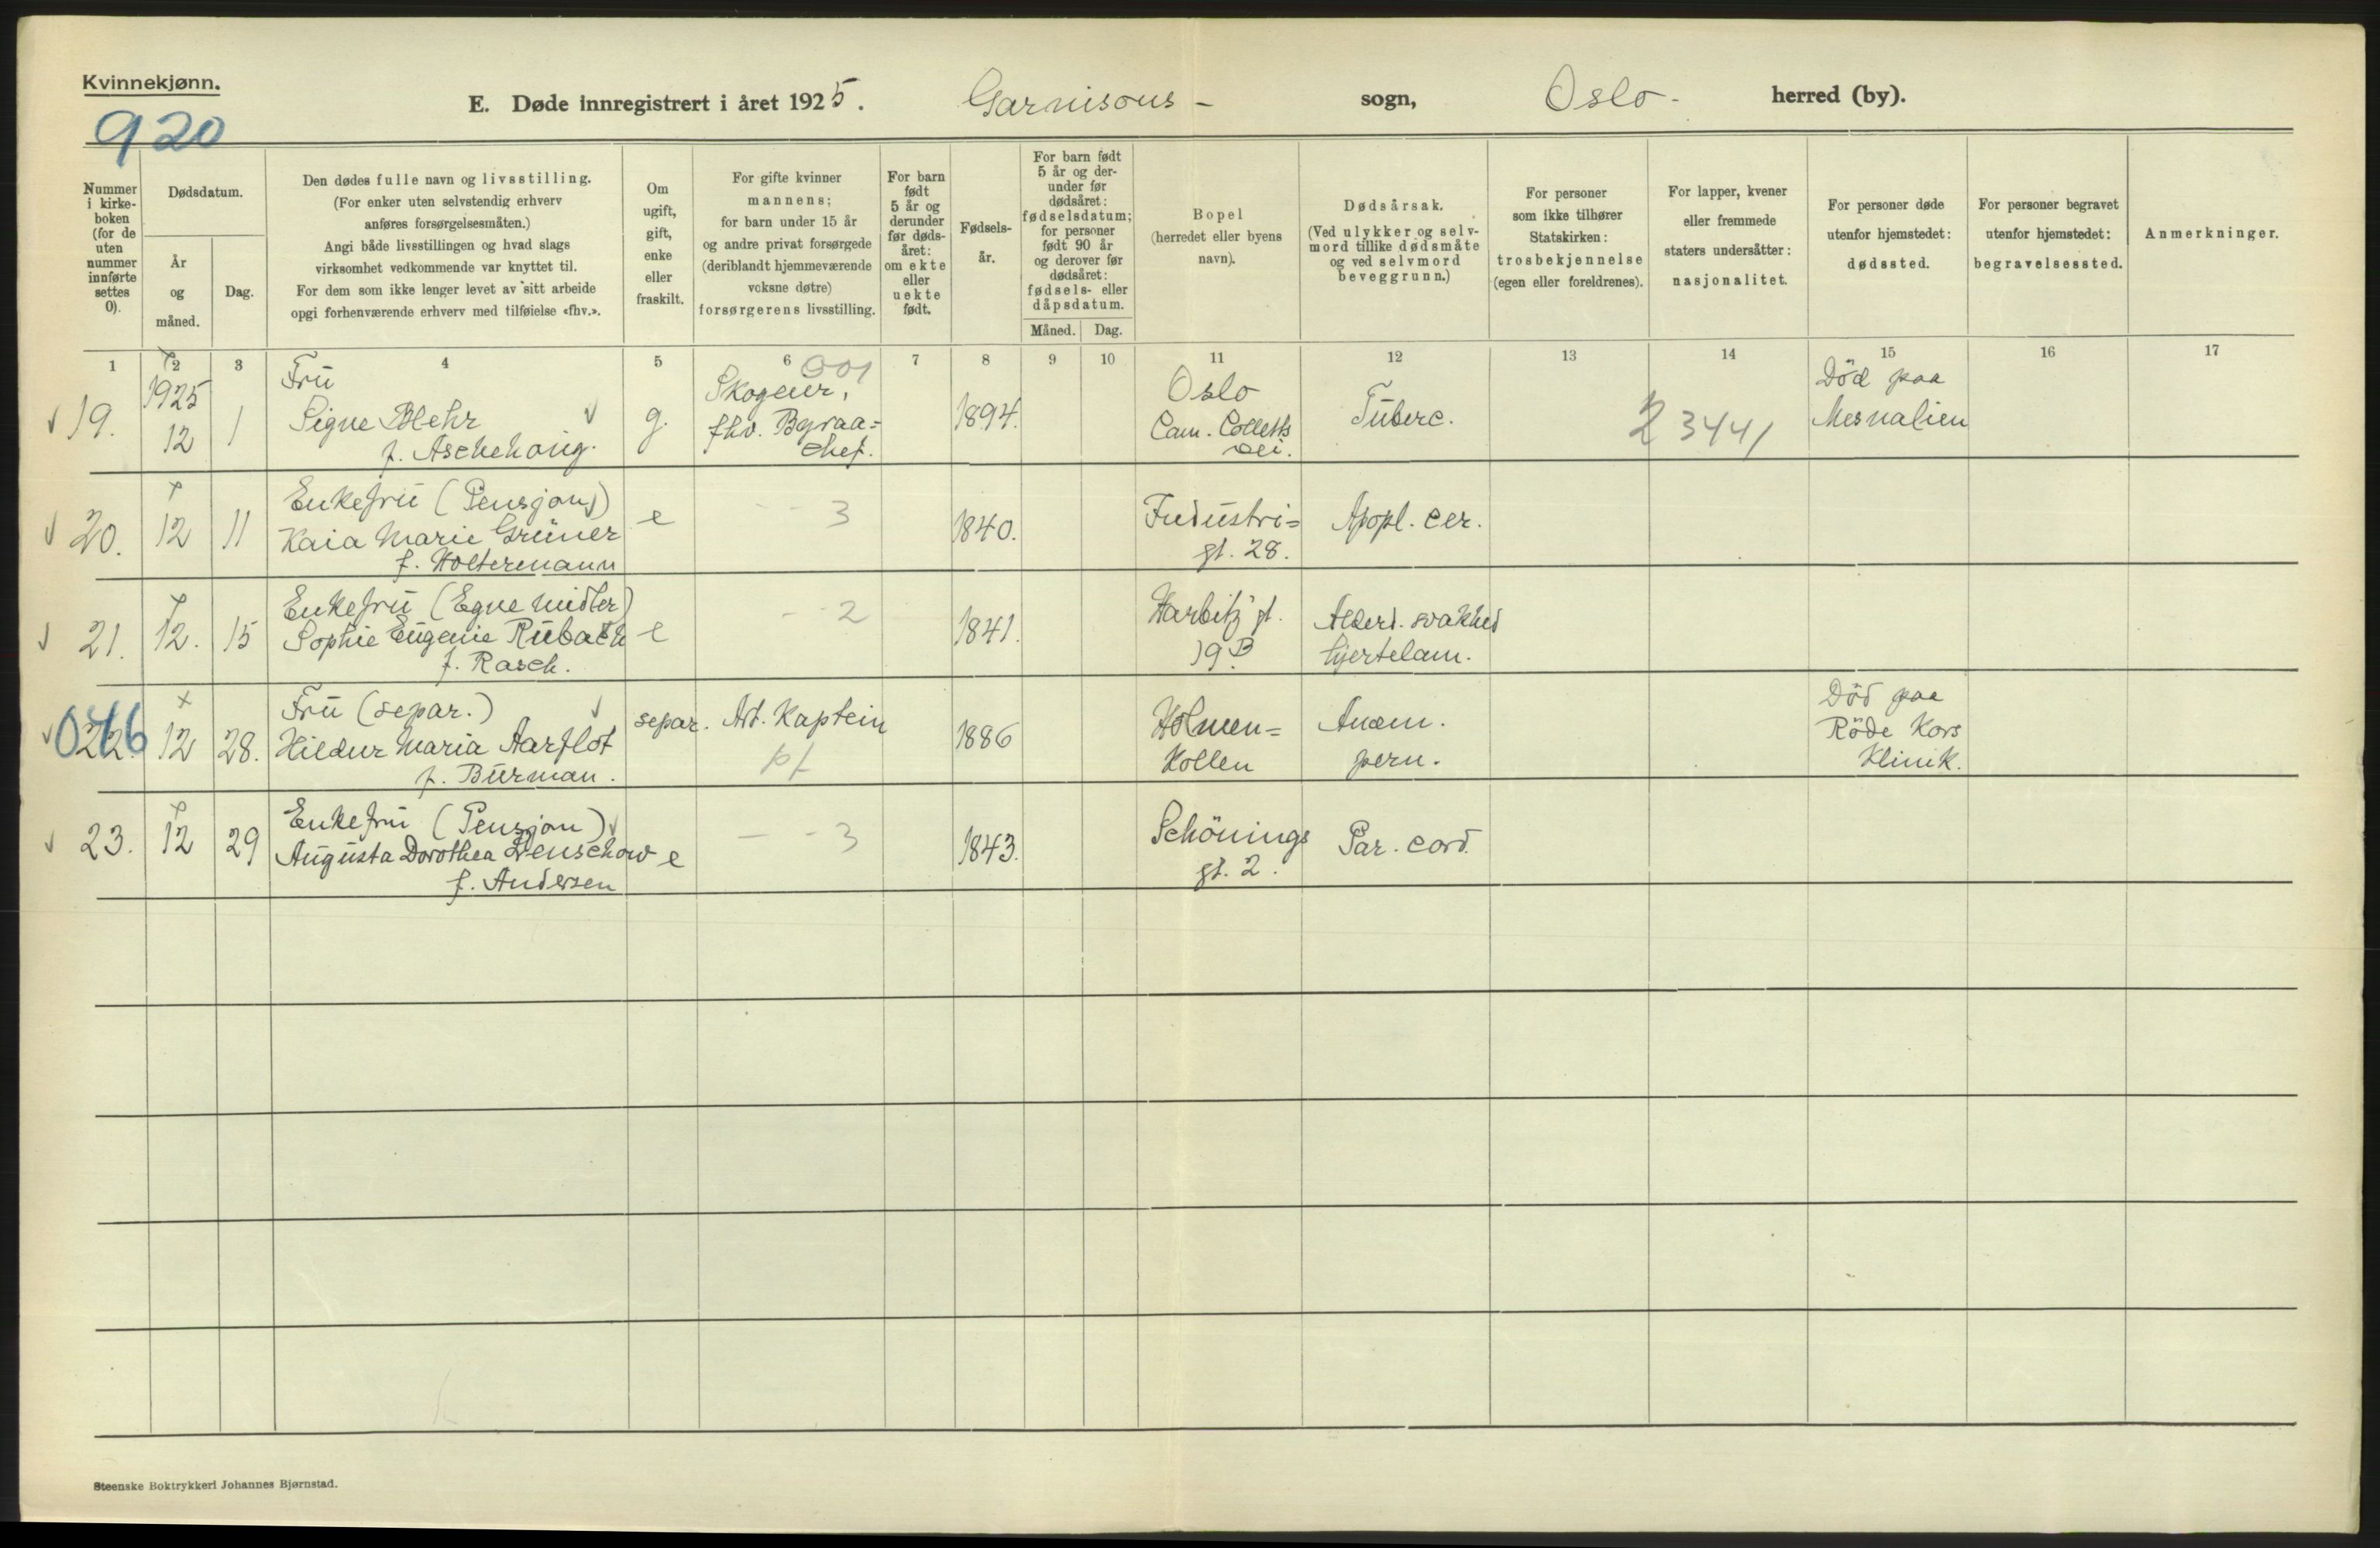 Kvinnekjønn.
920
E. Døde innregistrert i året 1925. Garnisons - sogn, Oslo - herred (by).
Nummer
i kirke-
boken
(for de
uten
nummer
innførte
settes
0).
Dødsdatum.
År
og
måned.
Dag.
Den dødes fulle navn og livsstilling.
(For enker uten selvstendig erhverv
anføres forsørgelsesmåten.)
Angi både livsstillingen og hvad slags
virksomhet vedkommende var knyttet til.
For dem som ikke lenger levet av sitt arbeide
opgi forhenværende erhverv med tilføielse «fhv.».
Om
ugift,
gift,
enke
eller
fraskilt.
For gifte kvinner
mannens;
for barn under 15 år
og andre privat forsørgede
(deriblandt hjemmeværende
voksne døtre)
forsørgerens livsstilling.
For barn
født
5 år og
derunder
før døds-
året:
om ekte
eller
uekte
født.
Fødsels-
år.
For barn født
5 år og der-
under før
dødsåret:
fødselsdatum;
for personer
født 90 år
og derover før
dødsåret:
fødsels- eller
dåpsdatum.
Måned. Dag.
Bopel
(herredet eller byens
navn).
Dødsårsak.
(Ved ulykker og selv-
mord tillike dødsmåte
og ved selvmord
beveggrunn.)
For personer
som ikke tilhører
Statskirken:
trosbekjennelse
(egen eller foreldrenes).
For lapper, kvener
eller fremmede
staters undersåtter:
nasjonalitet.
For personer døde
utenfor hjemstedet:
dødssted.
For personer begravet
utenfor hjemstedet:
begravelsessted.
Anmerkninger.
1 2 3 4 5 6 7 8 9 10 11 12 13 14 15 16 17
19.
1925
12
1
Frü
Signe Blehr
f. Aschehoüg.
g.
001
Skogeier,
fhv. Byraa=
chef.
1894.
Oslo
Cam. Colletts
vei.
Tüberc.
2 3441
Død paa
Mesnalien
20.
12
11
Enkefrü (Pensjon)
Kaia Marie Grüner
f. Holtermann
e
- - 3
1840.
Indüstri=
gt. 28.
Apopl. cer.
21.
12.
15
Enkefrü (Egne midler)
Sophie Eügenie Rübach
f. Rasch.
e
- - 2
1841.
Harbitz' gt.
19B.
Alderd. svakhed
hjertelam.
22.
12
28.
Frü (separ.)
Hildur Maria Aarflot
f. Bürman.
separ.
Art. Kaptein
1886
Holmen=
kollen
Anæm.
pern.
Død paa
Røde Kors
Klinik.
23.
12
29
Enkefrü (Pensjon)
Augüsta Dorothea Lenschow
f. Andersen
e
- - 3
1843.
Schönings
gt. 2.
Par. cord.
Steenske Boktrykkeri Johannes Bjørnstad.